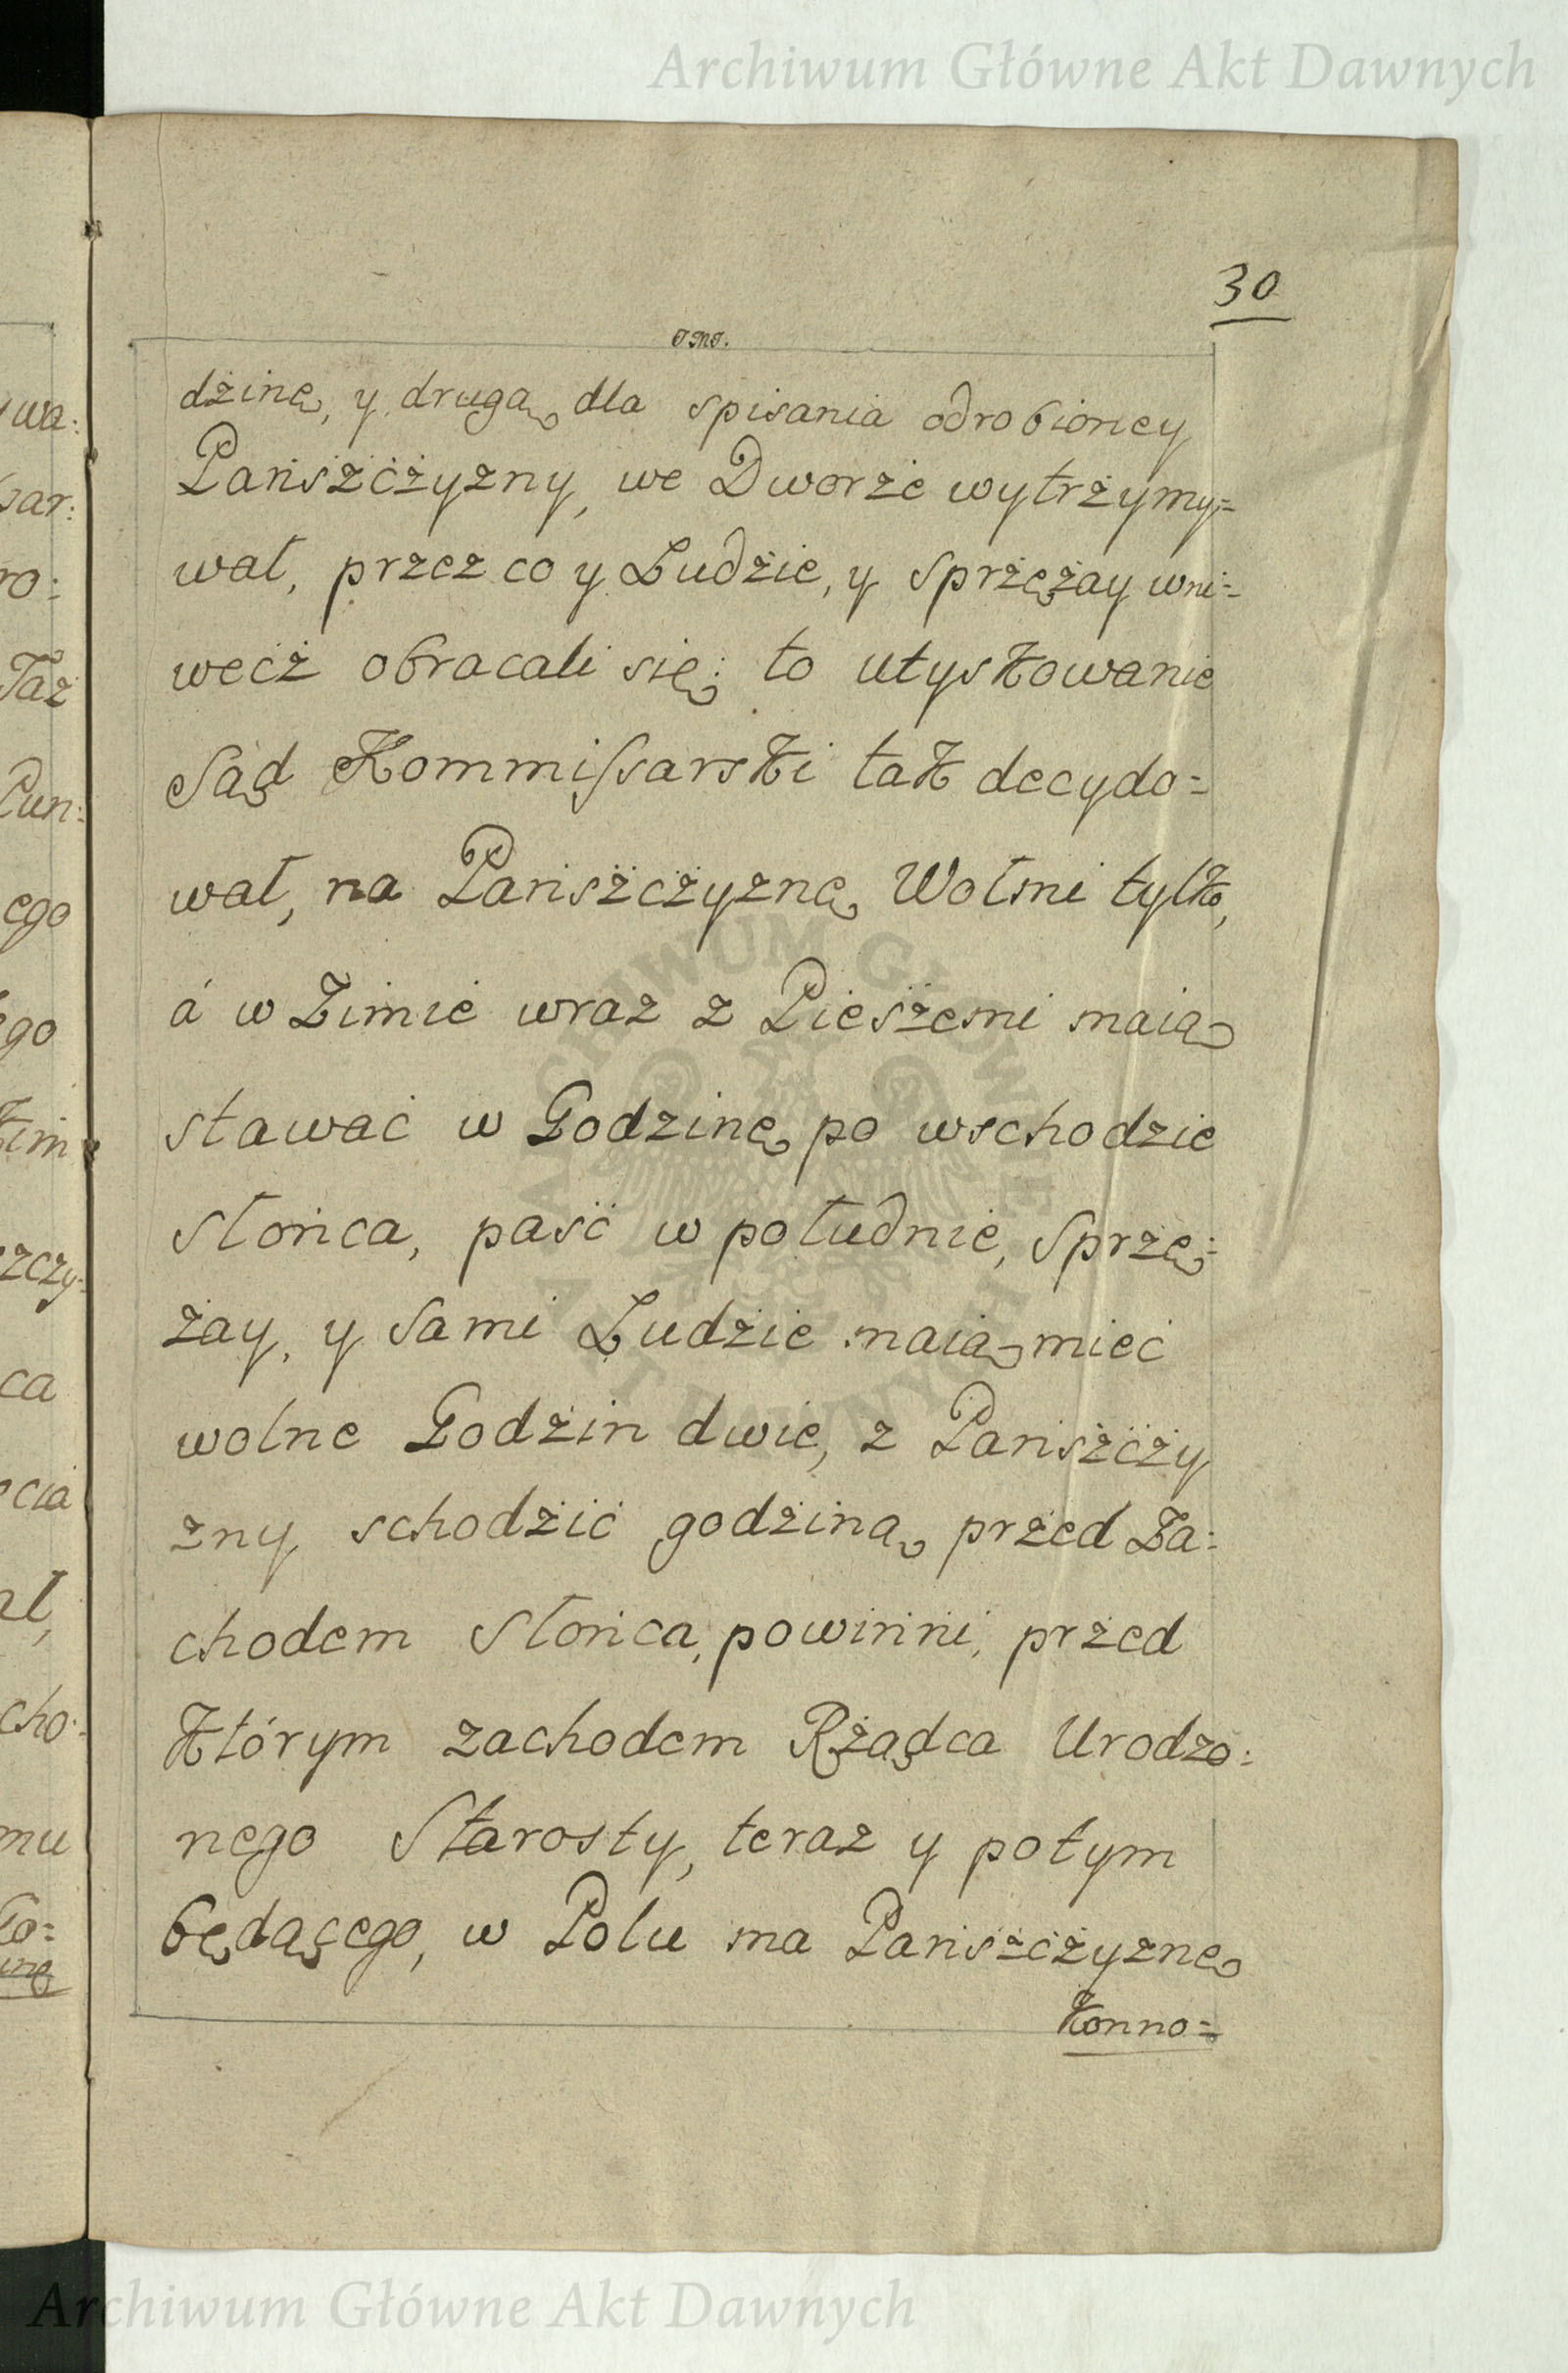 Archiwum Główne Akt Dawnych
30
JMJ.
dźinę, y drugą dla spisania odrobioney
Pańsżċżyzny, we Dworże wytrżymy=
wał, przez co y Ludżie, y sprżężay wni=
wecż obracali się; to utyskowanie
Sąd Kommissarski tak decydo=
wał, na Pańsżcżyznę Wołmi tylko,
á w Zimie wraz z Pieszemi maią
stawać w Godzinę po wschodzie
słońca, paść w południe, sprzę=
żay, y sami Ludzie maią mieć
wolne Godżin dwie, z Pańsżcży
zny schodżić godżiną przed Za=
chodem Słońca, powinni, przed
którym zachodem Rżądca Urodzo=
nego Starosty, teraz y potym
będącego, w Polu ma Pańsżcżyznę
konno=
Archiwum Główne Akt Dawnych